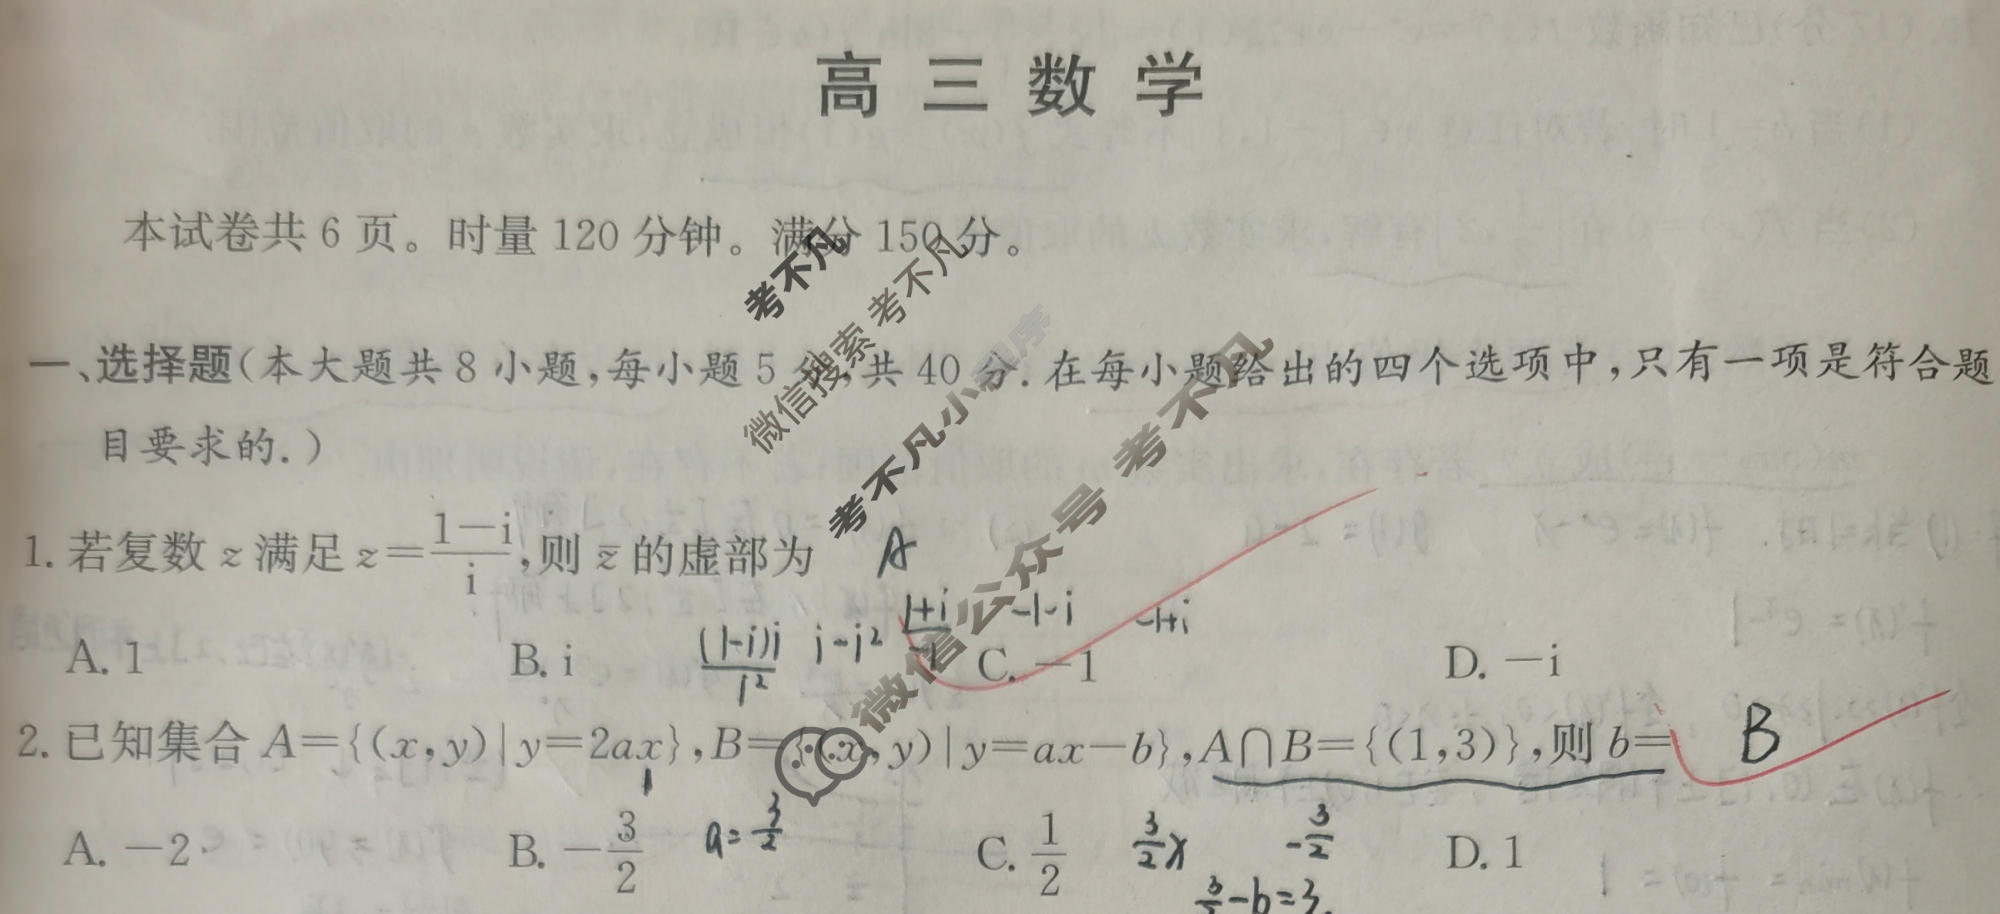 高三数学
本试卷共 6 页。时量 120 分钟。满分 150 分。
一、选择题(本大题共 8 小题,每小题 5 分,共 40 分.在每小题给出的四个选项中,只有一项是符合题
目要求的.)
1. 若复数 z 满足 z=\frac{1-i}{i},则 \bar{z} 的虚部为 A
\frac{(1-i)i}{i²} i-i² \frac{1+i}{-1} -1-i -1+i
A. 1 B. i C. -1 D. -i
2. 已知集合 A={(x,y)|y=2ax},B={(x,y)|y=ax-b},A∩B={(1,3)},则 b= B
A. -2 B. -\frac{3}{2} a=\frac{3}{2} C. \frac{1}{2} \frac{3}{2}x -\frac{3}{2} D. 1
\frac{3}{2}-b=3.
考不凡
微信搜索 考不凡
考不凡小程序
微信公众号 考不凡